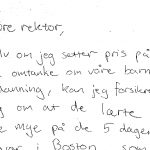 øre rektor,
lv om jeg setter pris på
omtanke om våre barn
danning, kan jeg forsikre
g om at de lærte
e mye på de 5 dager
var i Boston som